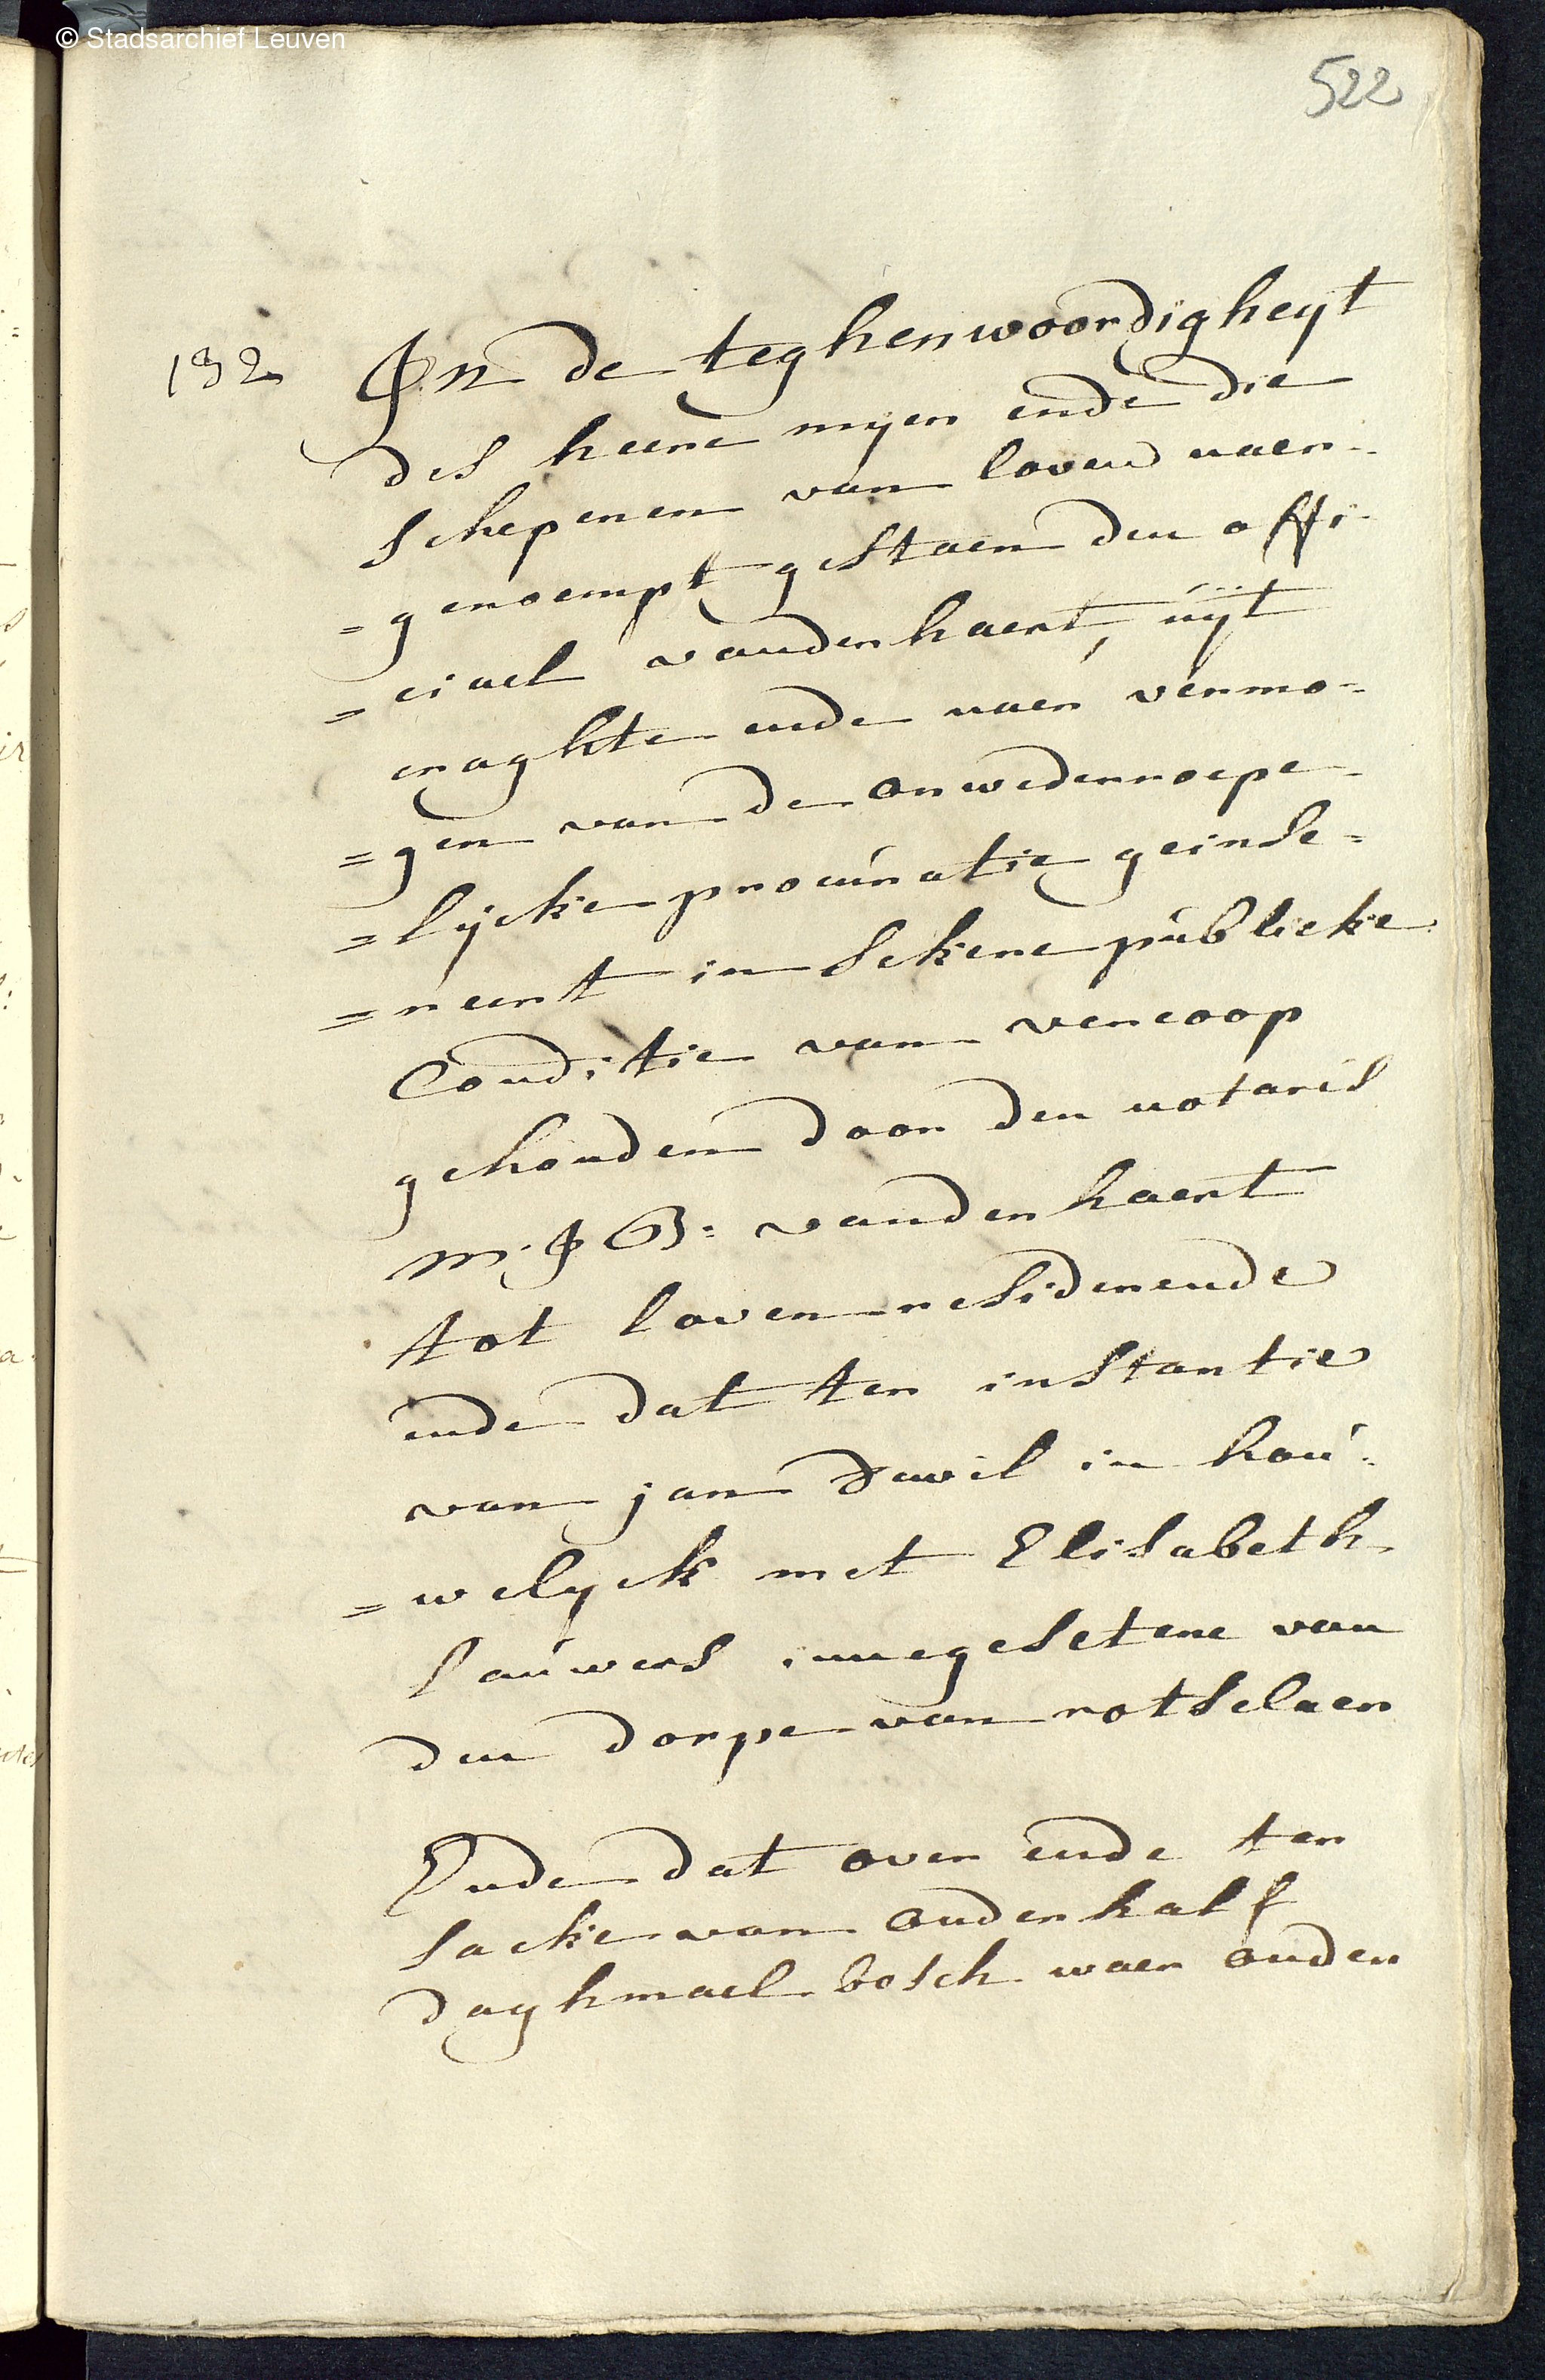 © Stadsarchief Leuven
522
132 In de teghenwoordigheyt
des heere myer ende die
schepenen van loven naer-
=genoempt gestaen den offi-
=ciael vandenhaert, uijt
craghte ende naer vermo-
=gen van de onwederroepe-
=lijcke procuratie geinse-
=reert in sekere publicke
Conditie van vercoop
gehouden door den notaris
M: J B: vandenhaert
tot loven residerende
ende dat ter instantie
van jan dewil in hou-
=welyck met Elisabeth
lauwers innegesetene van
den dorpe van rotselaer
Ende dat over ende ter
sacke van onderhalf
daghmael bosch waer onder